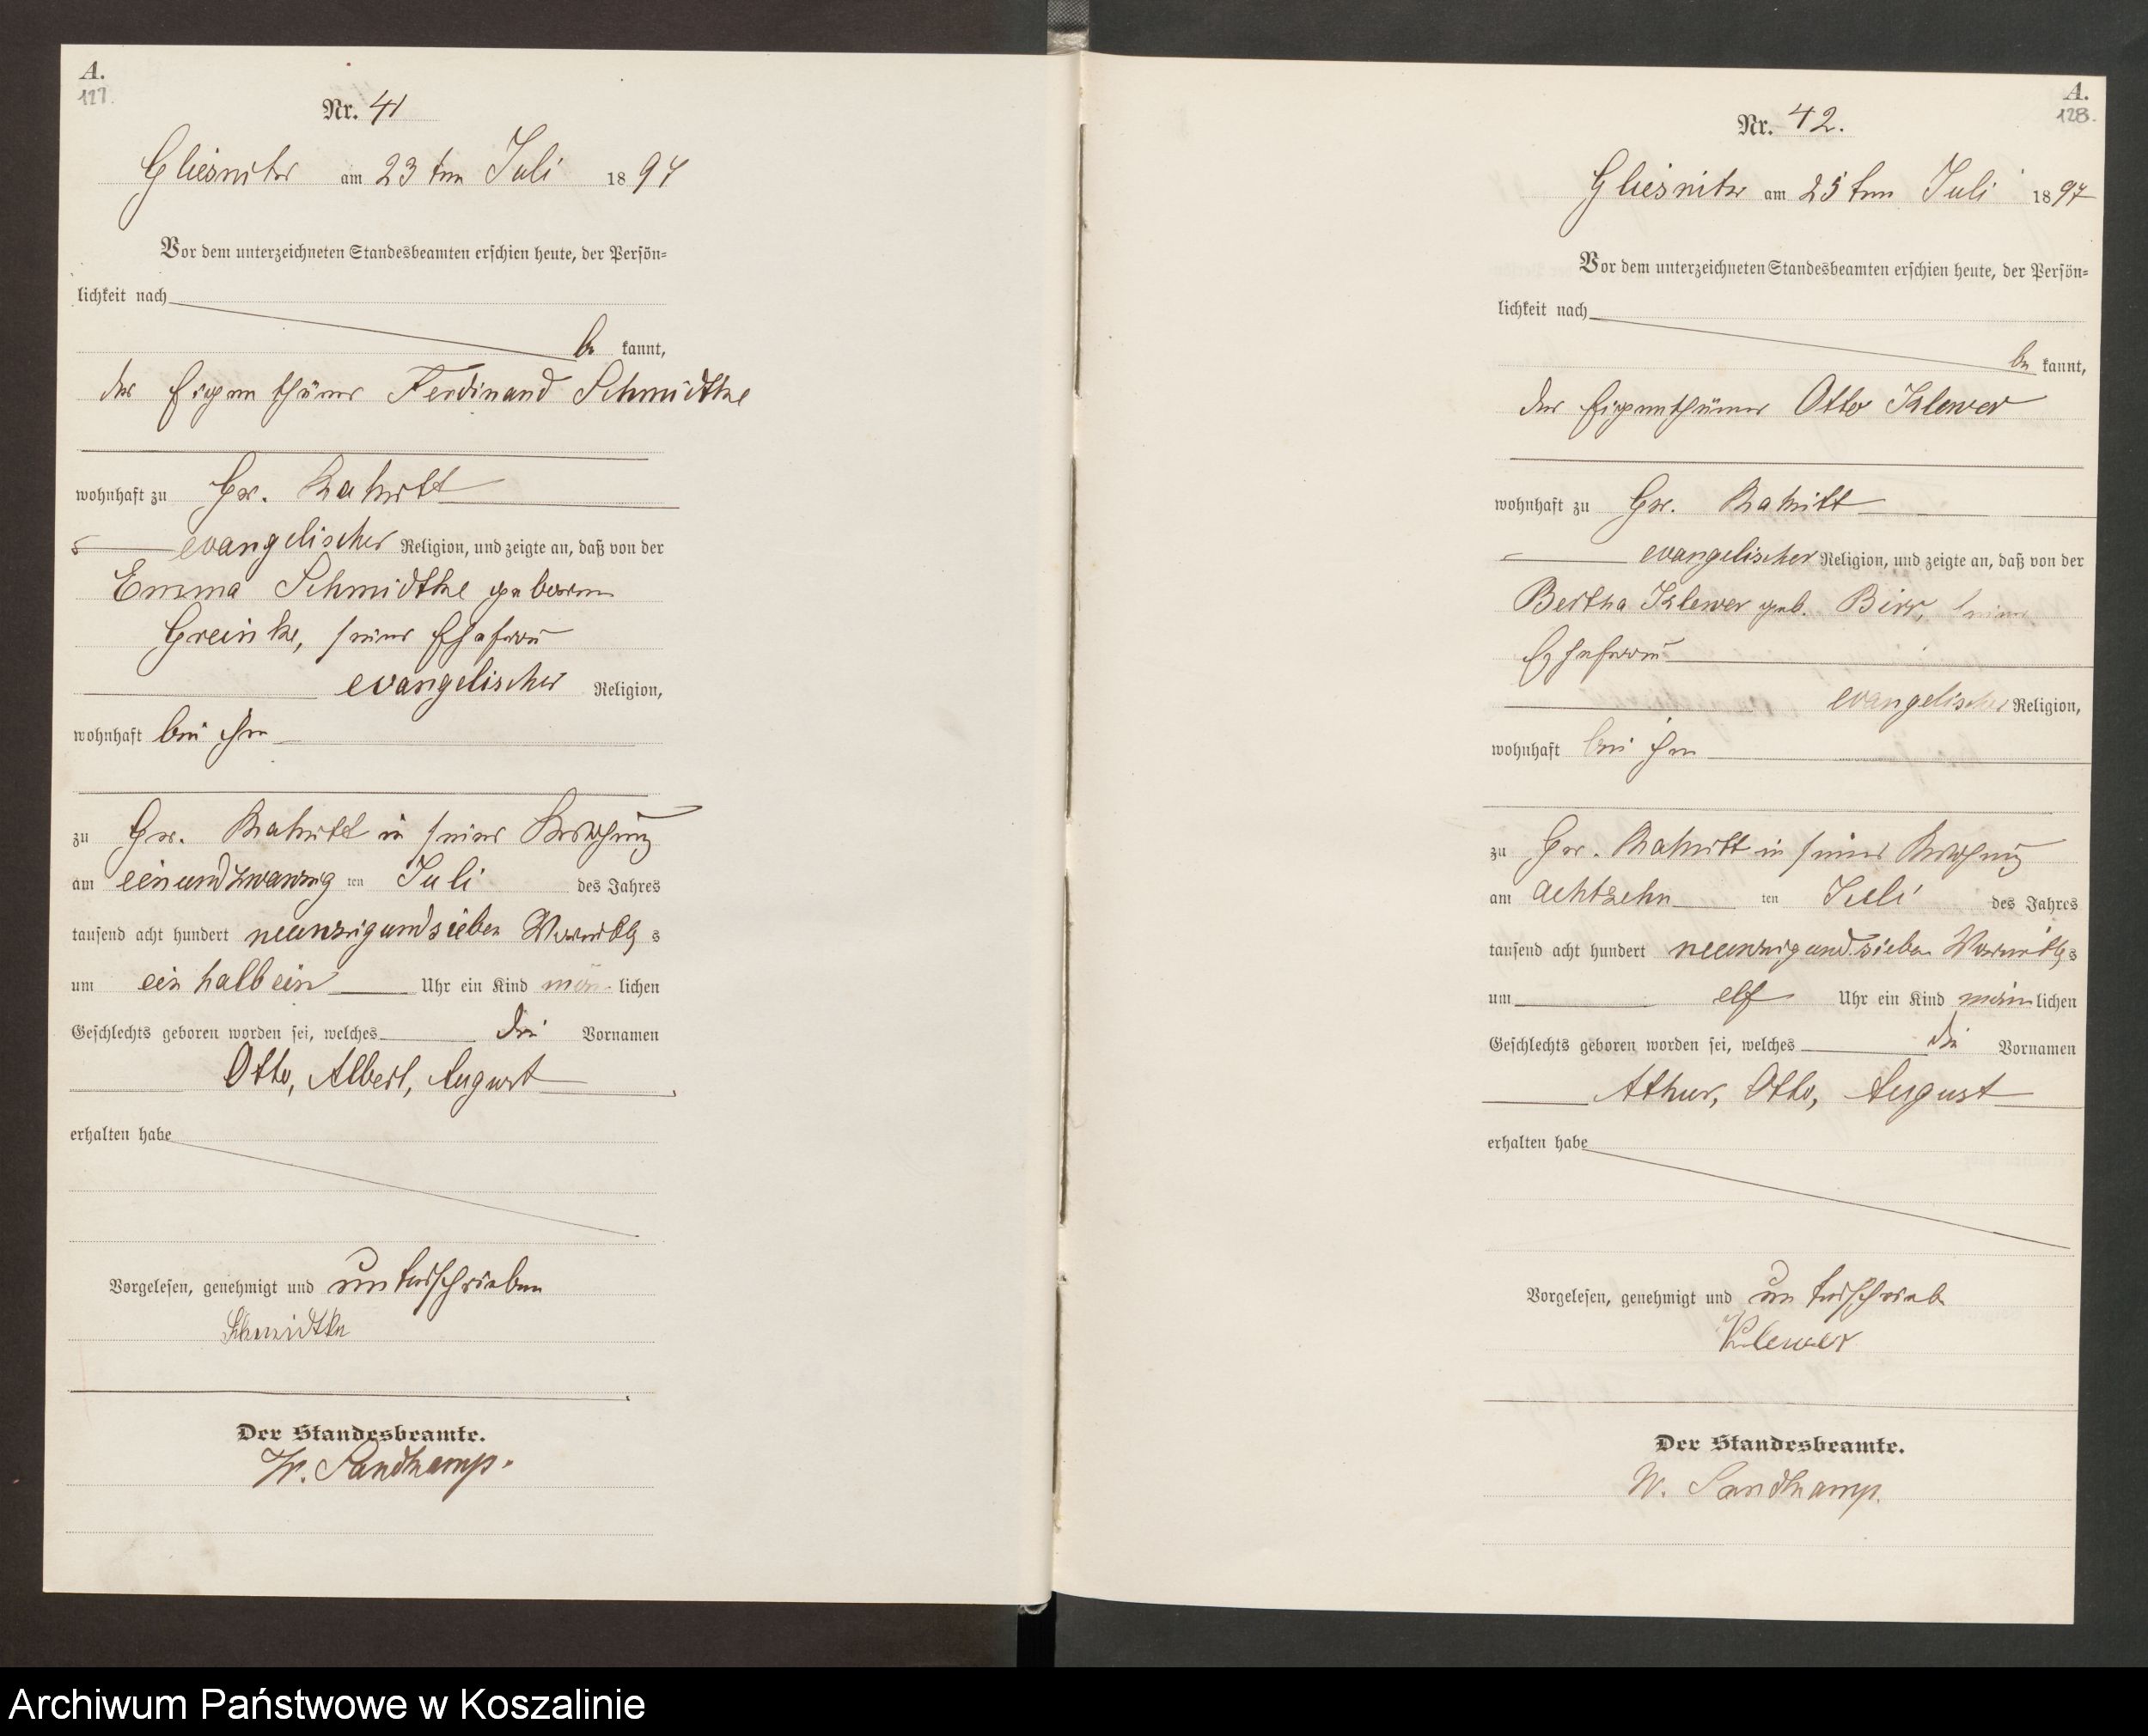 A.
127.
Nr. 41
Gliesnitz am 23 ten Juli 1897
Vor dem unterzeichneten Standesbeamten erschien heute, der Persön=
lichkeit nach
be kannt,
der Eigenthümer Ferdinand Schmidtke
wohnhaft zu Gr. Rakitt
evangelischer Religion, und zeigte an, daß von der
Emma Schmidtke geboren
Greinke, seiner Ehefrau
evangelischer Religion,
wohnhaft bei ihm
zu Gr. Rakitt in seiner Wohnung
am einundzwanzig ten Juli des Jahres
tausend acht hundert neunzigundsieben Vormittg s
um ein halb ein Uhr ein Kind män- lichen
Geschlechts geboren worden sei, welches die Vornamen
Otto, Albert, August
erhalten habe
Vorgelesen, genehmigt und unterschrieben
Schmidtke
Der Standesbeamte.
W. Sandkamp.
A.
128.
Nr. 42.
Gliesnitz am 25 ten Juli 1897
Vor dem unterzeichneten Standesbeamten erschien heute, der Persön=
lichkeit nach
be kannt,
der Eigenthümer Otto Klewer
wohnhaft zu Gr. Rakitt
evangelischer Religion, und zeigte an, daß von der
Bertha Klewer geb. Birr, seiner
Ehefrau
evangelischer Religion,
wohnhaft bei ihm
zu Gr. Rakitt in seiner Wohnung
am achtzehn ten Juli des Jahres
tausend acht hundert neunzigundsieben Vormittg s
um elf Uhr ein Kind män lichen
Geschlechts geboren worden sei, welches die Vornamen
Athur, Otto, August
erhalten habe
Vorgelesen, genehmigt und unterschrieb
Klewer
Der Standesbeamte.
W. Sandkamp.
Archiwum Państwowe w Koszalinie